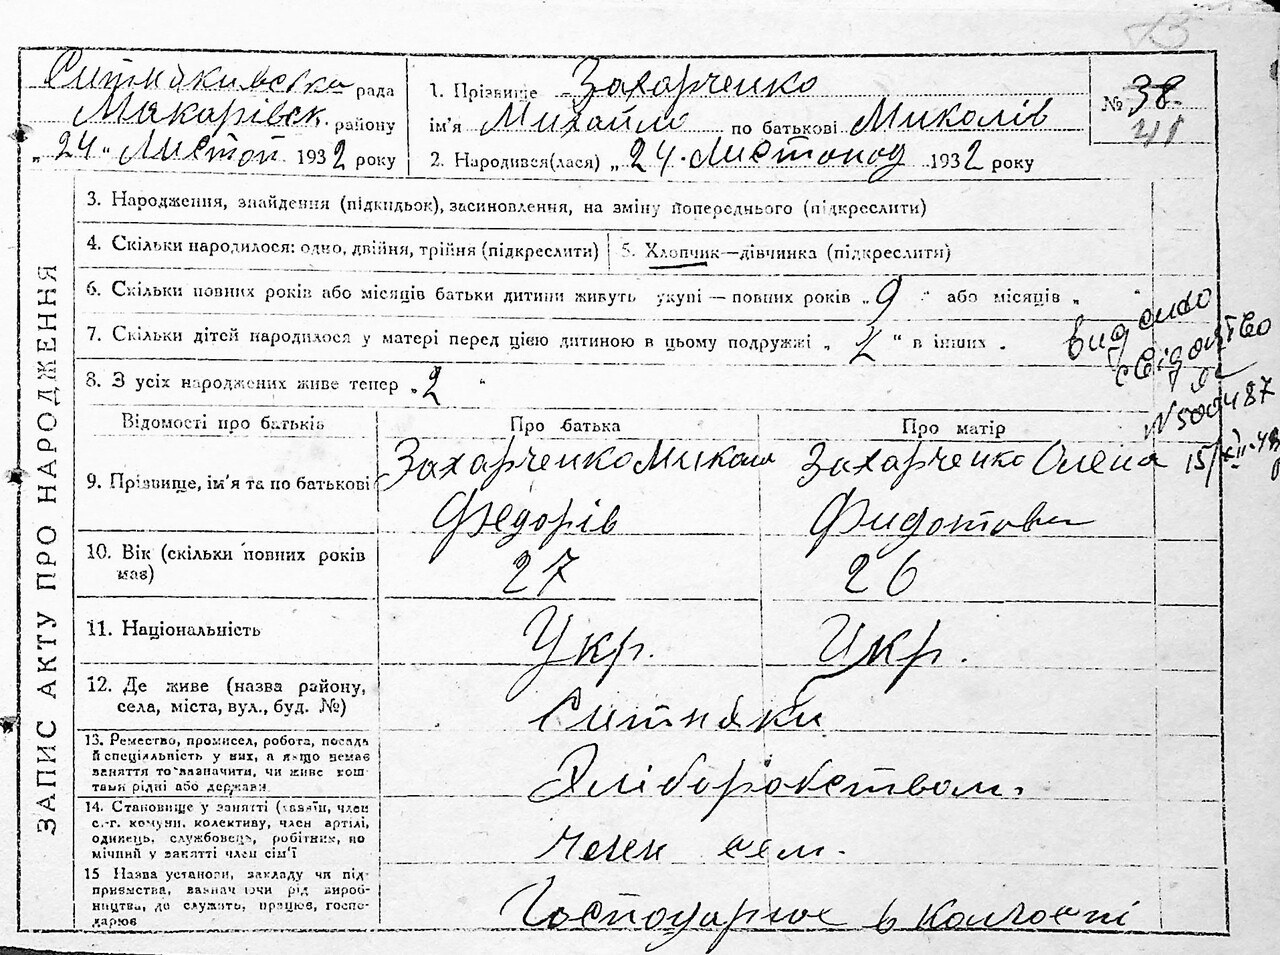 Ситняківська рада
Макарівськ. району
„24" Листоп 1932 року
1. Прізвище Захарченко
ім'я Михайло по батькові Миколів
2. Народився(лася) „24. Листопод 1932 року
№ 38.
41
ЗАПИС АКТУ ПРО НАРОДЖЕННЯ
3. Народження, знайдення (підкидьок), засиновлення, на зміну попереднього (підкреслити)
4. Скільки народилося: одно, двійня, трійня (підкреслити)
5. Хлопчик—дівчинка (підкреслити)
6. Скільки повних років або місяців батьки дитини живуть укупі — повних років „9" або місяців „ "
7. Скільки дітей народилося у матері перед цією дитиною в цьому подружжі „2" в інших .
8. З усіх народжених живе тепер „2"
видано
свідоцтво
N 500487
15/XII-49
Відомості про батьків
Про батька
Про матір
9. Прізвище, ім'я та по батькові
Захарченко Микола
Федорів
Захарченко Олена
Фидотовна
10. Вік (скільки повних років
має)
27
26
11. Національність
Укр.
Укр.
12. Де живе (назва району,
села, міста, вул., буд. №)
Ситняки
13. Ремество, промисел, робота, посада
й спеціяльність у них, а якщо немає
заняття то зазначити, чи живе кош
тами рідні або держави
Хліборобством.
14. Становище у занятті (хазяїн, член
с.-г. комуни, колективу, член артілі,
одинець, службовець, робітник, по
мічний у занятті член сім'ї
член сем.
15 Назва установи, закладу чи під
приємства, зазначаючи рід вироб-
ництва, де служить, працює, госпо-
дарює
Господарює в колгоспі